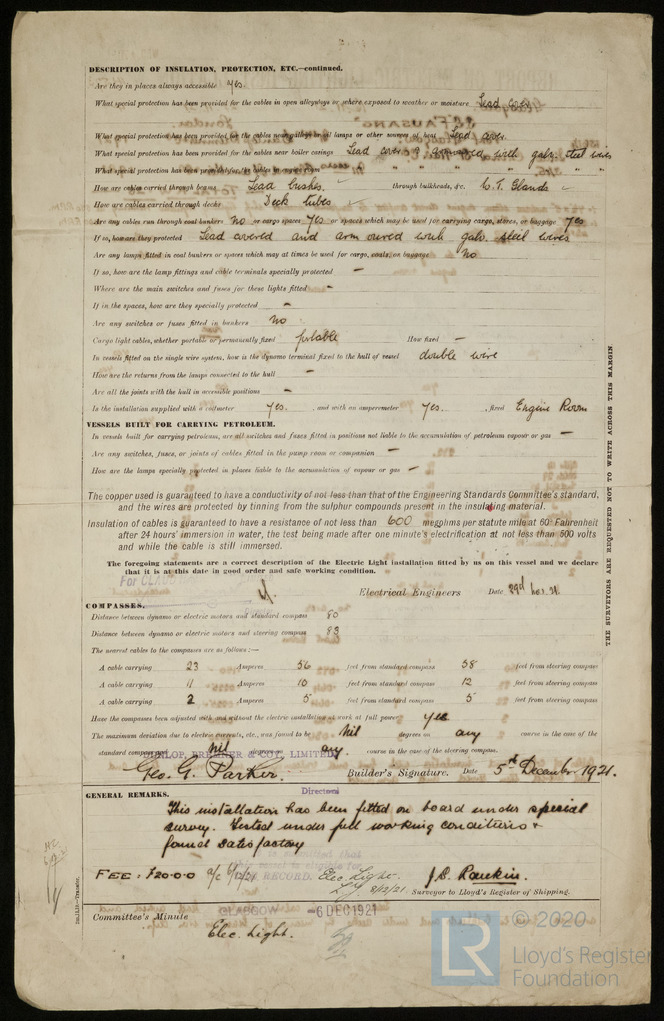 DESCRIPTION OF INSULATION, PROTECTION, ETC.—continued.
Are they in places always accessible yes.
What special protection has been provided for the cables in open alleyways or where exposed to weather or moisture Lead cover
What special protection has been provided for the cables near galleys or oil lamps or other sources of heat Lead cover
What special protection has been provided for the cables near boiler casings Lead cover & armoured with galv. steel wires
What special protection has been provided for the cables in engine room " " " " " "
How are cables carried through beams Lead bushes. through bulkheads, &c. W.T. Glands
How are cables carried through decks Deck tubes
Are any cables run through coal bunkers No or cargo spaces yes or spaces which may be used for carrying cargo, stores, or baggage yes
If so, how are they protected Lead covered and armoured with galv. steel wires
Are any lamps fitted in coal bunkers or spaces which may at times be used for cargo, coals, or baggage No
If so, how are the lamp fittings and cable terminals specially protected —
Where are the main switches and fuses for these lights fitted —
If in the spaces, how are they specially protected —
Are any switches or fuses fitted in bunkers No
Cargo light cables, whether portable or permanently fixed portable How fixed —
In vessels fitted on the single wire system, how is the dynamo terminal fixed to the hull of vessel double wire
How are the returns from the lamps connected to the hull —
Are all the joints with the hull in accessible positions —
Is the installation supplied with a voltmeter yes. , and with an amperemeter yes. , fixed Engine Room
VESSELS BUILT FOR CARRYING PETROLEUM.
In vessels built for carrying petroleum, are all switches and fuses fitted in positions not liable to the accumulation of petroleum vapour or gas —
Are any switches, fuses, or joints of cables fitted in the pump room or companion —
How are the lamps specially protected in places liable to the accumulation of vapour or gas —
The copper used is guaranteed to have a conductivity of not less than that of the Engineering Standards Committee's standard,
and the wires are protected by tinning from the sulphur compounds present in the insulating material.
Insulation of cables is guaranteed to have a resistance of not less than 600 megohms per statute mile at 60° Fahrenheit
after 24 hours' immersion in water, the test being made after one minute's electrification at not less than 500 volts
and while the cable is still immersed.
The foregoing statements are a correct description of the Electric Light installation fitted by us on this vessel and we declare
that it is at this date in good order and safe working condition.
Electrical Engineers Date 29th Nov. 21.
COMPASSES.
Distance between dynamo or electric motors and standard compass 80
Distance between dynamo or electric motors and steering compass 83
The nearest cables to the compasses are as follows:—
A cable carrying 23 Amperes 56 feet from standard compass 58 feet from steering compass
A cable carrying 11 Amperes 10 feet from standard compass 12 feet from steering compass
A cable carrying 2 Amperes 5 feet from standard compass 5 feet from steering compass
Have the compasses been adjusted with and without the electric installation at work at full power yes
The maximum deviation due to electric currents, etc., was found to be Nil degrees on any course in the case of the
standard compass and nil degrees on any course in the case of the steering compass.
DUNLOP, BREMNER & CO., LIMITED
Geo. G. Parker. Builder's Signature. Date 5th December 1921.
Directors
GENERAL REMARKS.
This installation has been fitted on board under special
survey. Tested under full working conditions &
found satisfactory
FEE: £20-0-0 RECORD. Elec. Light. 8/12/21 J.S. Rankin.
Surveyor to Lloyd's Register of Shipping.
Committee's Minute GLASGOW -6 DEC 1921
Elec. Light.
THE SURVEYORS ARE REQUESTED NOT TO WRITE ACROSS THIS MARGIN
LR © 2020
Lloyd's Register
Foundation